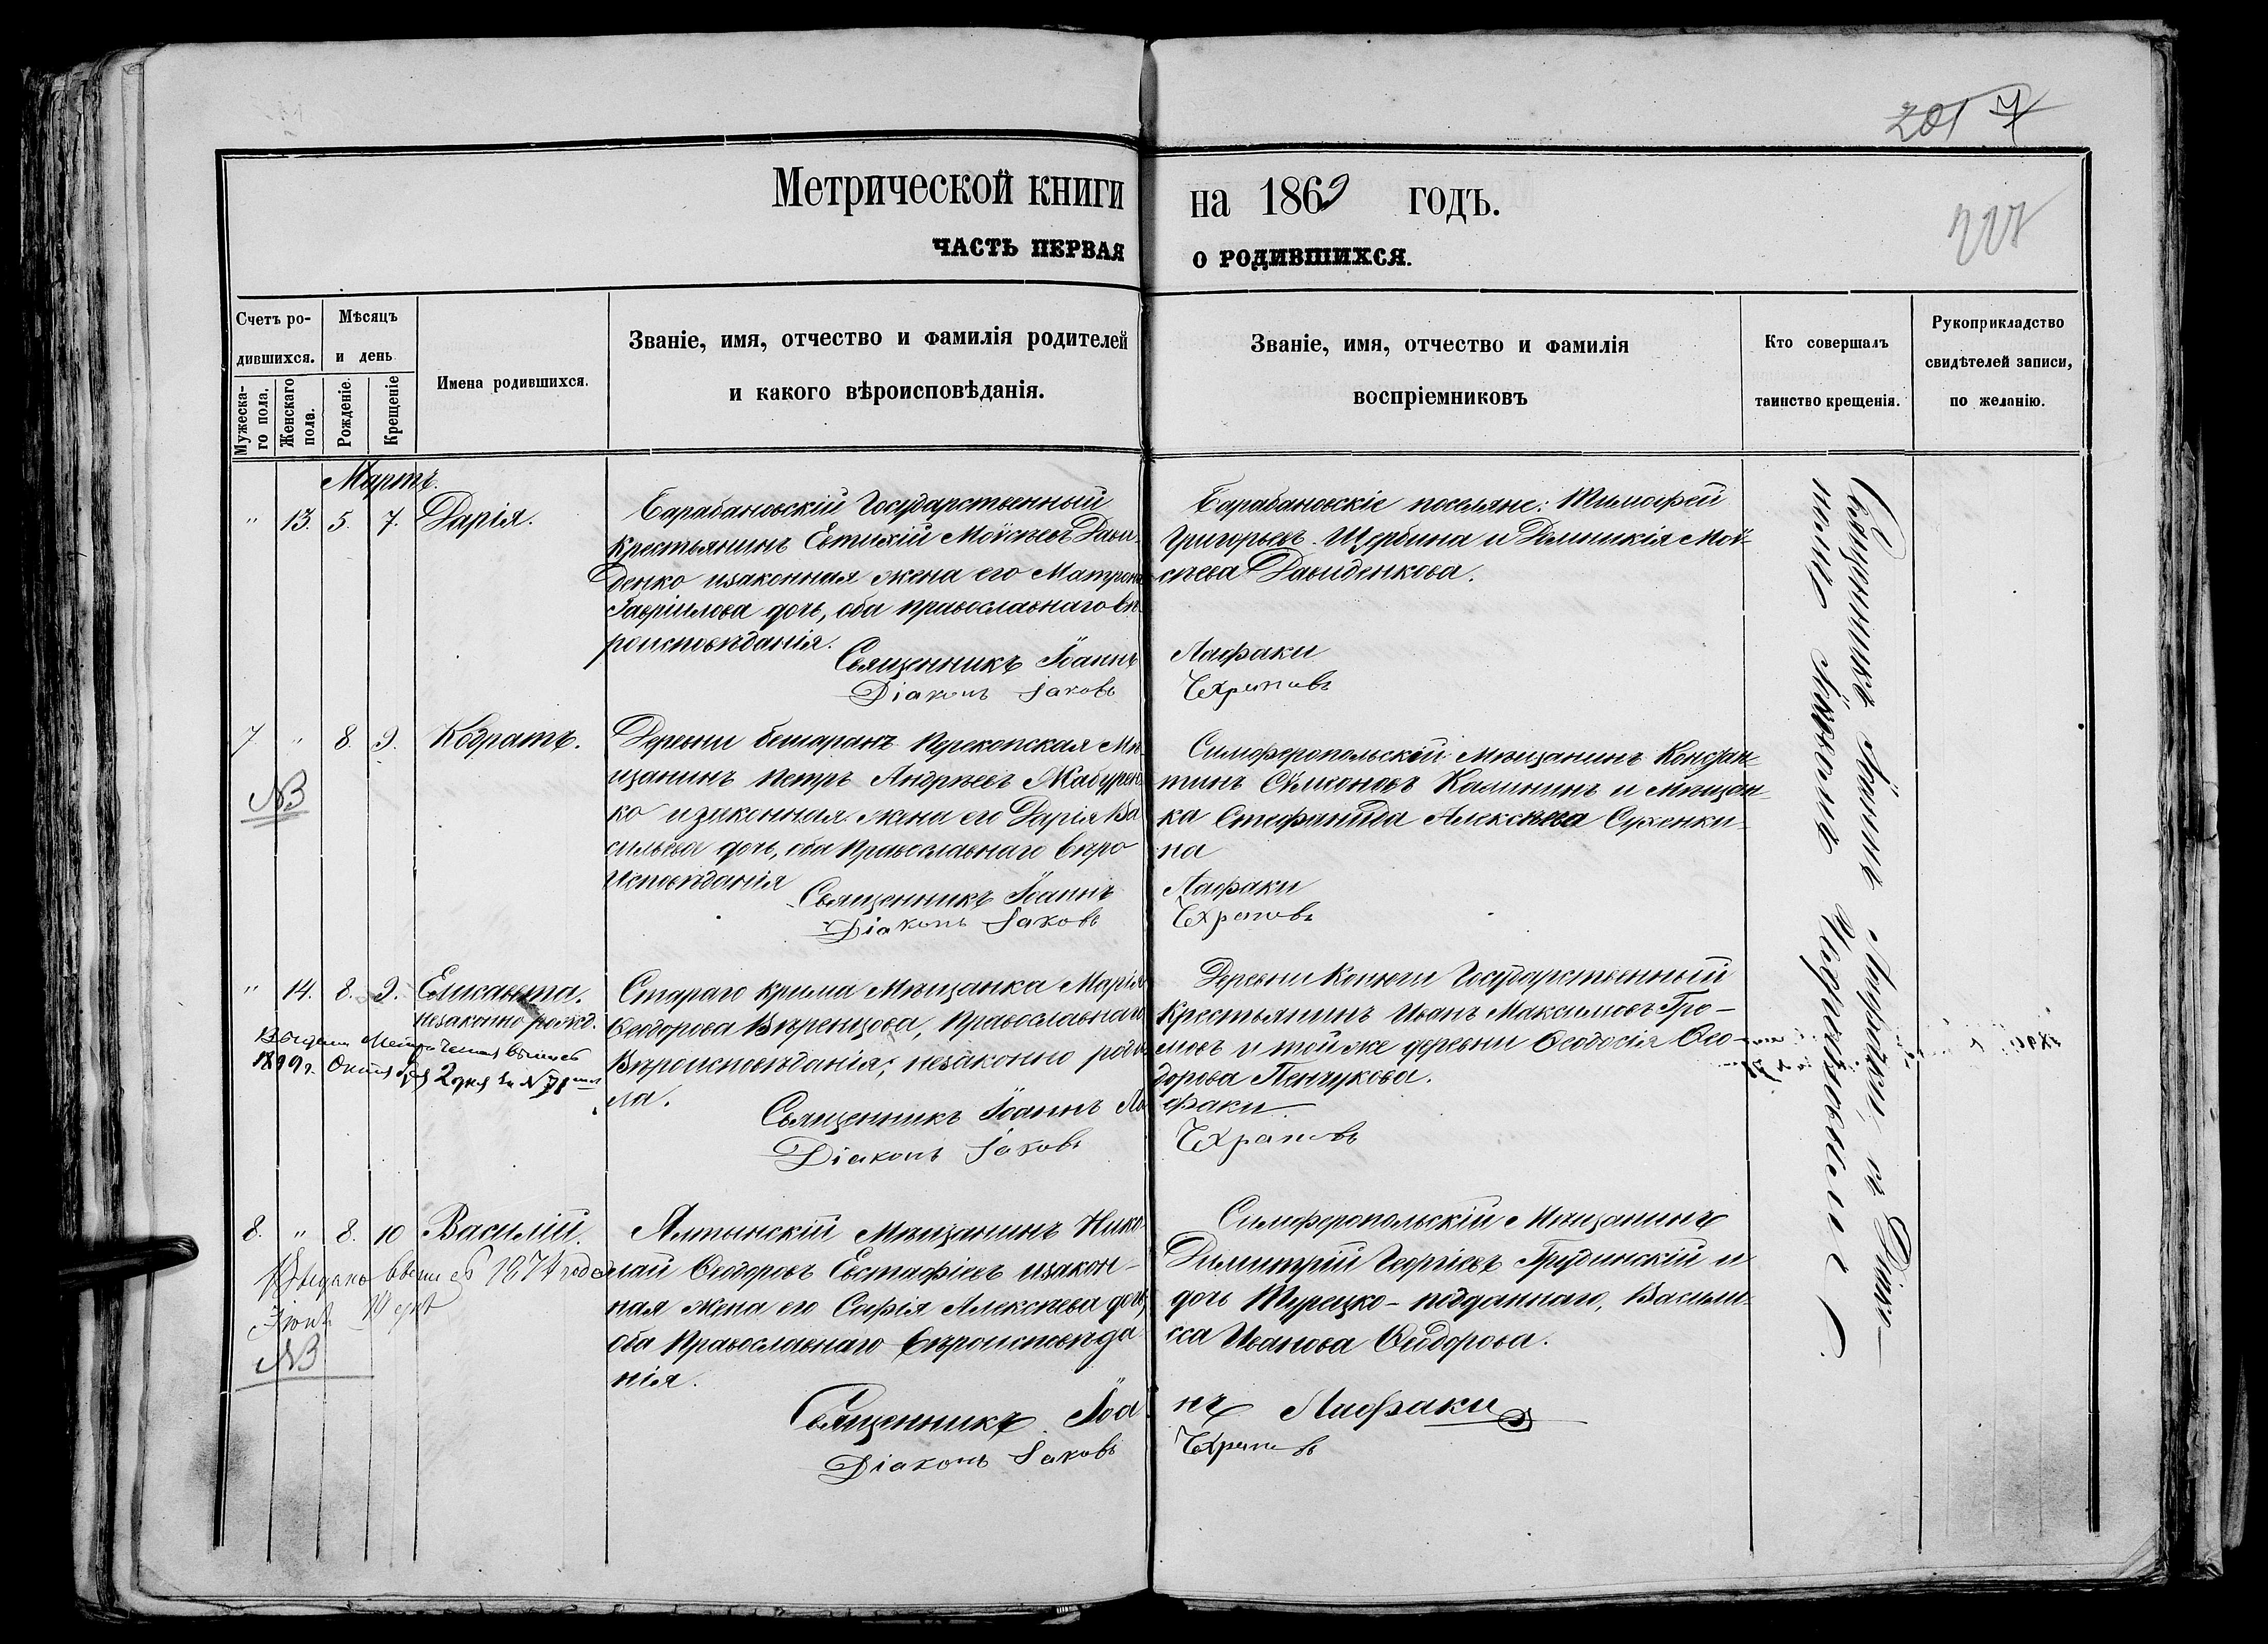 201 7
Метрической книги на 1869 годъ.
ЧАСТЬ ПЕРВАЯ О РОДИВШИХСЯ.
227
Счетъ ро-
дившихся.
Мужеска-
го пола.
Женскаго
пола.
Мѣсяцъ
и день
Рожденіе.
Крещеніе
Имена родившихся.
Званіе, имя, отчество и фамилія родителей
и какого вѣроисповѣданія.
Званіе, имя, отчество и фамилія
воспріемниковъ
Кто совершалъ
таинство крещенія.
Рукоприкладство
свидѣтелей записи,
по желанію.
Мартъ.
" 13. 5. 7. Дарія.
Барабановскій Государственный
Крестьянинъ Евтихій Моѵсѣевъ Дави-
денко изаконная жена его Матрона
Гавріилова дочь, оба православнаго вѣ
роисповѣданія.
Священникъ Іоаннъ Лафаки
Діаконъ Іаковъ Чехрановъ
Барабановскіе поселяне: Тимофей
Григорьевъ Щербина и Домникія Моѵ-
сѣева Давиденкова.
7. " 8. 9. Кодратъ.
NB
Деревни бешаранъ Перекопская Мѣ
щанинъ Петръ Андреевъ Жабурен
ко изаконная жена его Дарія Ва
сильева дочь, оба Православнаго вѣро
Исповѣданія
Священникъ Іоаннъ Лафаки
Діаконъ Іаковъ Чехрановъ
Симферопольскій Мѣщанинъ Констан
тинъ Сѵмеоновъ Калининъ и мѣщан-
ка Стефанида Алексѣева Суженки-
на
" 14. 8. 9. Елисавета.
незаконно рожд.
Выдана Метрическая выпись
1899 г. Октября 2 дня за № 71
Стараго Крыма Мѣщанка Марія
Ѳеодорова Вѣренцова, Православнаго
Вѣроисповѣданія, незаконно роди
ла.
Священникъ Іоаннъ Ла факи
Діаконъ Іаковъ Чехрановъ
Деревни Копюги Государственный
Крестьянинъ Иванъ Максимовъ Гро-
мовъ и той же деревни Ѳеодосія Ѳео-
дорова Пенчукова.
8. " 8. 10 Василій.
Выдано выпись 1874 года
Іюня 14 дня
NB
Ялтынскій Мѣщанинъ Нико
лай Ѳеодоровъ Евстафіевъ изакон-
ная жена его Софія Алексѣева дочь,
оба Православнаго Вѣроисповѣда
нія.
Священникъ Іоа нъ Лафаки
Діаконъ Іаковъ Чехрановъ
Симферопольскій Мѣщанинъ
Димитрій Георгіевъ Грудинскій и
дочь Турецко-подданнаго, Васили-
сса Иванова Ѳеодорова.
Священникъ Іоаннъ Лафаки, съ Діако-